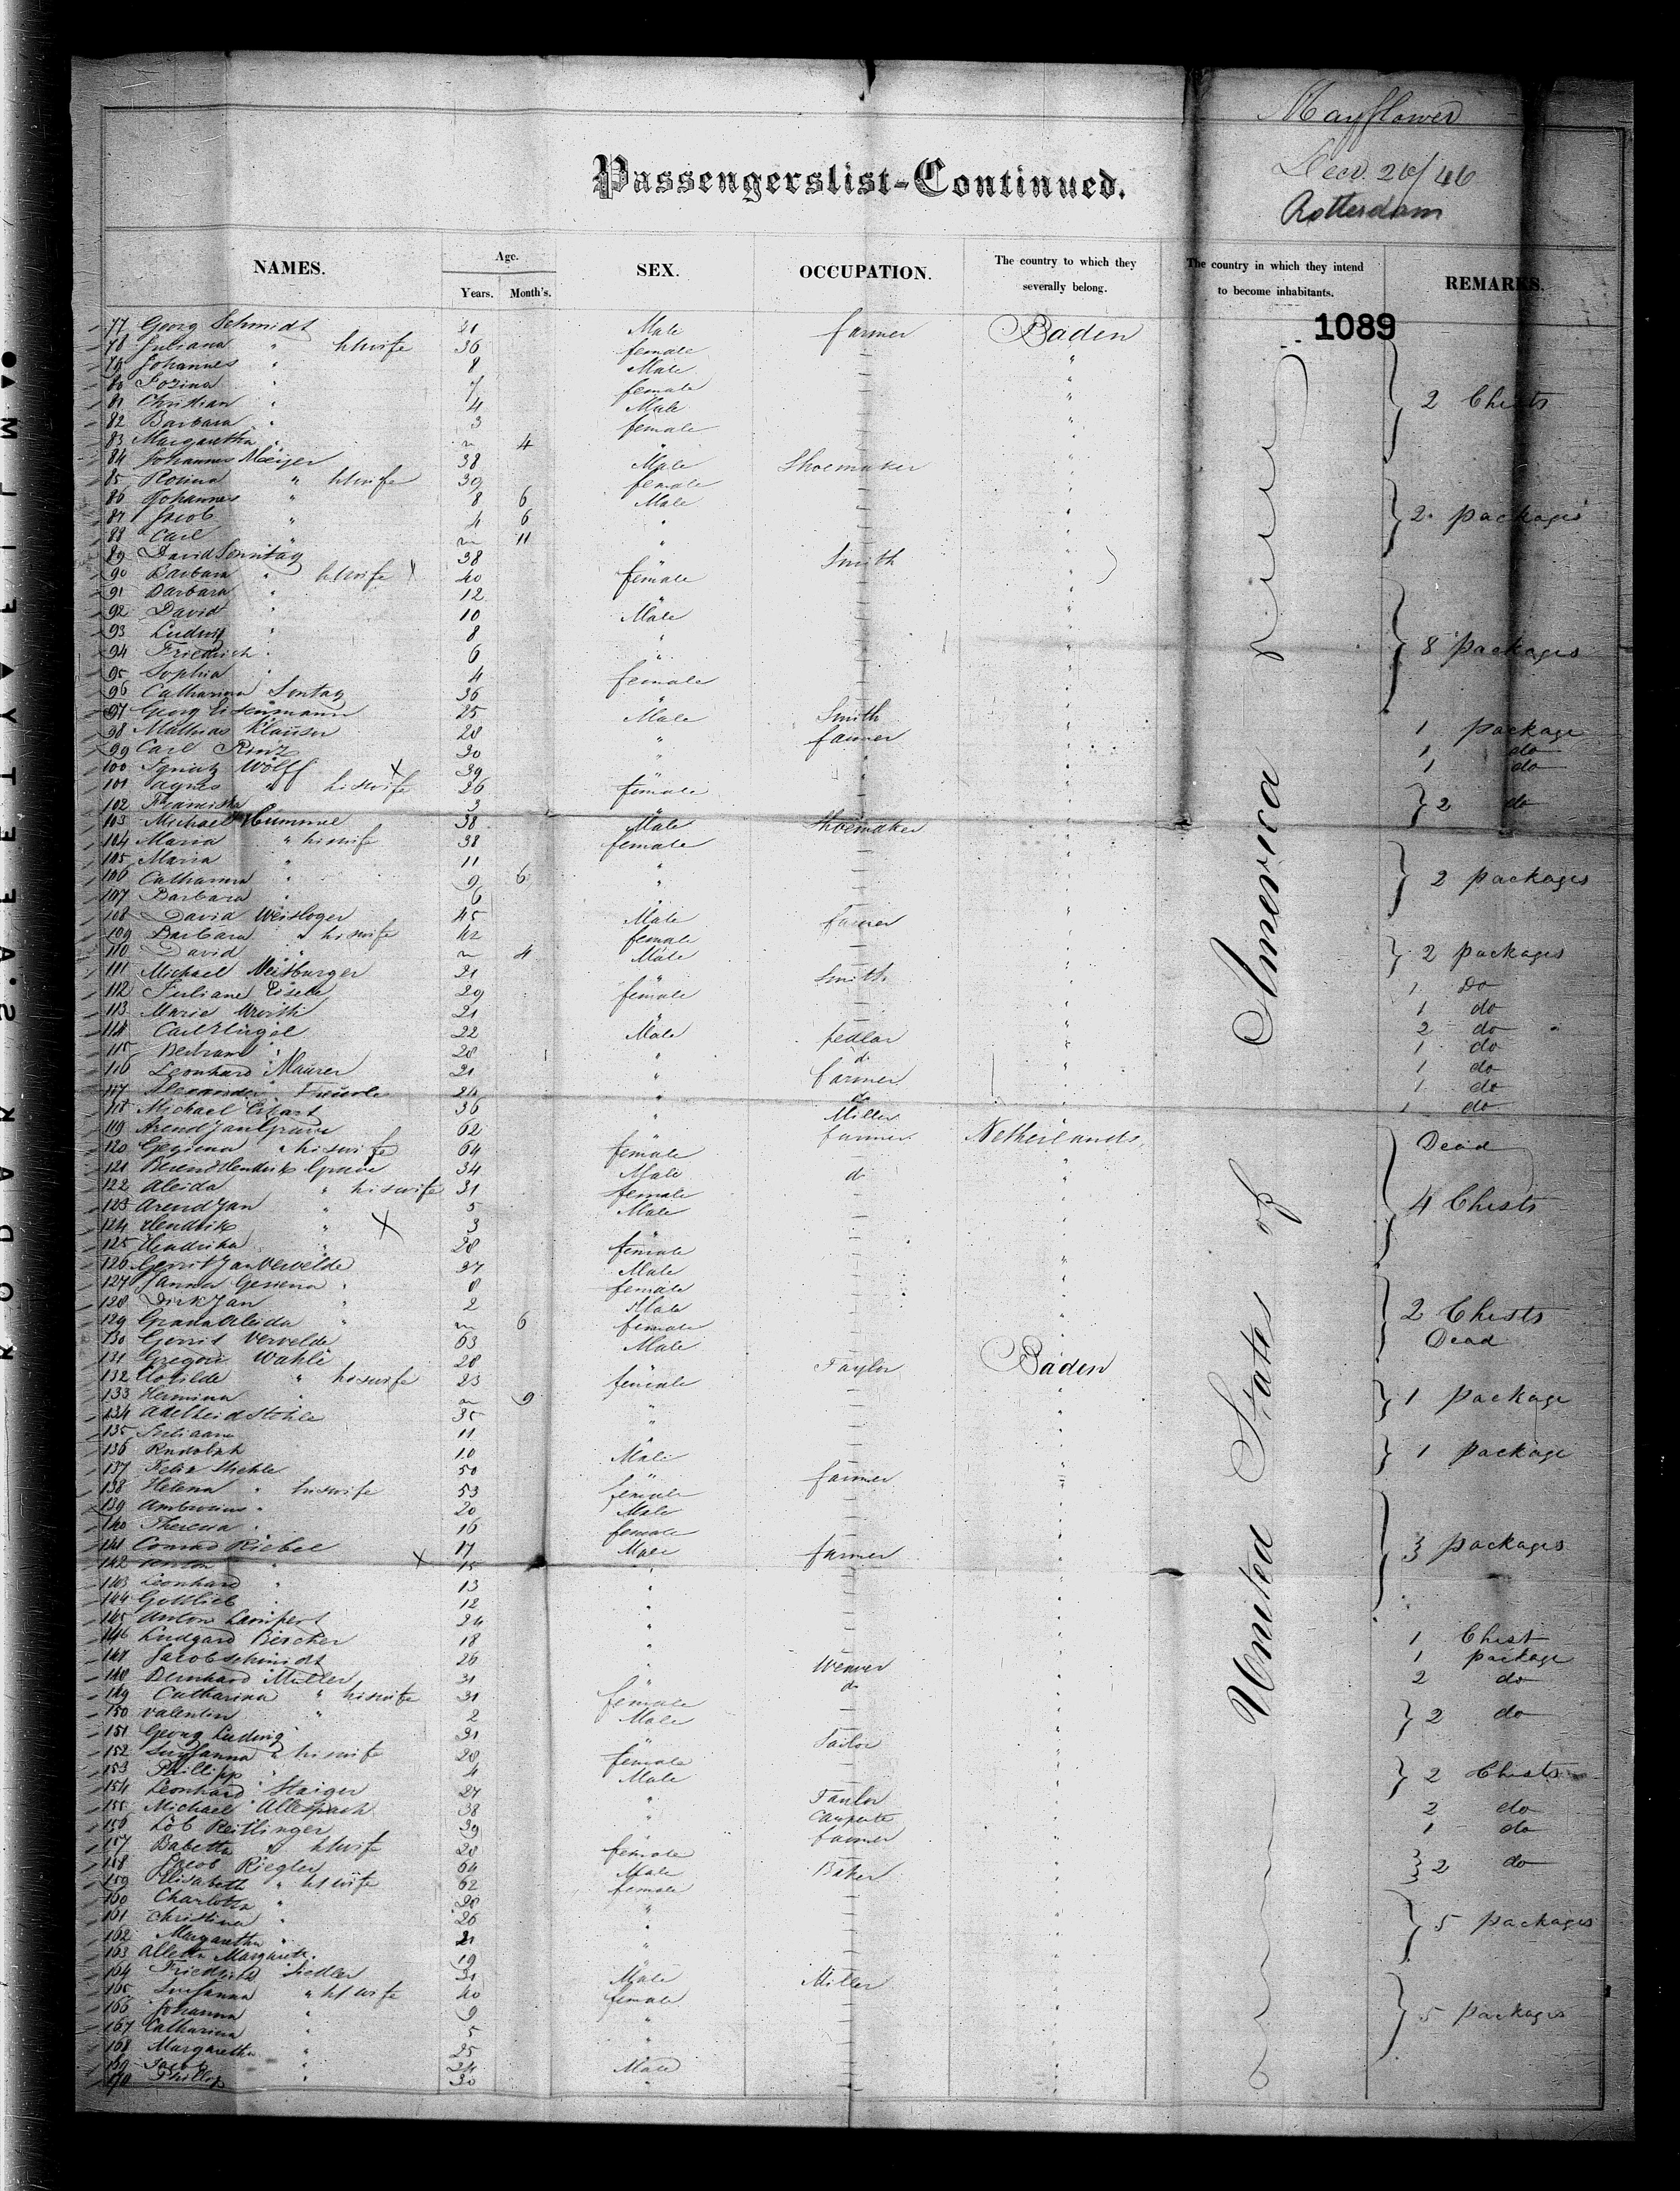 Mayflower
Decr. 26/46
Rotterdam
Passengerslist-Continued.
NAMES. Age. Years. Month's. SEX. OCCUPATION. The country to which they severally belong. The country in which they intend to become inhabitants. REMARKS.
1089
United States of America
77 Georg Schmidt 31 Male farmer Baden
78 Juliana " hs wife 36 female — "
79 Johannes " 8 Male — "
80 " 7 female — "
81 Christian " 4 Male — " 2 Chests
82 Barbara " 3 female — "
83 Margaretha " m 4 " — "
84 Johannes Meijer 38 Male Shoemaker "
85 Rosina " hs wife 30 female — "
86 Johannes " 8 6 Male — "
87 Jacob " 4 6 " — " 2 packages
88 Carl " m 11 " — "
89 David Sonntag 38 " Smith "
90 Barbara " hs wife 40 female — "
91 Barbara " 12 " — "
92 David " 10 Male — "
93 Ludwig " 8 " — "
94 Friedrich " 6 " — " 8 packages
95 Sophia " 4 female — "
96 Catharina Sontag 36 " — "
97 Georg Eisenmann 25 Male Smith "
98 Mathias Klauser 28 " farmer " 1 package
99 Carl Renz 30 " " " 1 do
100 Ignatz Wolff X 39 " " " 1 do
101 Agnes " his wife 26 female — "
102 3 " — " 2 do
103 Michael Hummel 38 Male Shoemaker "
104 Maria " his wife 38 female — "
105 Maria " 11 " — "
106 Catharina " 9 6 " — " 2 packages
107 Barbara " 6 " — "
108 David 45 Male Farmer "
109 Barbara " his wife 42 female — "
110 David " m 4 Male — " 2 packages
111 Michael 21 " Smith " 1 Do
112 Juliane Eisele 29 female — " 1 do
113 Marie 21 " — " 2 do
114 Carl 22 Male pedlar " 1 do
115 Bertram " 28 " do " 1 do
116 Leonhard Maurer 21 " farmer " 1 do
117 Alexander 24 " do " 1 do
118 Michael 36 " Miller "
119 Arend Jan Grave 62 " farmer Netherlands Dead
120 " his wife 64 female — "
121 Berend Hendrik Grave 34 Male do "
122 Aleida " his wife 31 female — "
123 Arend Jan " 5 Male — " 4 Chests
124 Hendrik " X 3 " — "
125 Hendrika " 28 female — "
126 Gerrit Jan Vervelde 37 Male — "
127 Janna Gesiena " 8 female — "
128 Dirk Jan " 2 Male — "
129 Grada Aleida " m 6 female — " 2 Chests
130 Gerrit Vervelde 63 Male — Dead
131 Gregor Wahle 28 " Taylor Baden
132 Clotilde " his wife 23 female — "
133 Hermina " m 9 " — " 1 package
134 Adelheid Stehle 35 " — "
135 Juliana 11 " — "
136 Rudolph 10 Male — " 1 package
137 Felix Stehle 50 " farmer "
138 Helena " his wife 53 female — "
139 Ambrosius " 20 Male — "
140 Theresia " 16 female — "
141 Conrad Riebel 17 Male farmer " 3 packages
142 Anton " X 15 " — "
143 Leonhard " 13 " — "
144 Gottlieb " 12 " — "
145 Anton Lampert 24 " — "
146 Ludgard Bescher 18 " — " 1 Chest
147 Jacob Schmidt 26 " Weaver " 1 package
148 Bernhard Muller 31 " do " 2 do
149 Catharina " his wife 31 female — "
150 Valentin " 2 Male — " 2 do
151 Georg Ludwig 31 " Tailor "
152 Susanna " his wife 28 female — "
153 Phillipp " 4 Male — " 2 Chests
154 Leonhard Staiger 27 " Taylor " 2 do
155 Michael Allespach 38 " Carpente " 1 do
156 Löb Reitlinger 39 " farmer "
157 Babetta " hs wife 28 female — " 2 do
158 Jacob Riegler 64 Male Baker "
159 Elisabeth " hs wife 62 female — "
160 Charlotta " 28 " — "
161 Christina " 26 " — " 5 packages
162 Margaretha " 21 " — "
163 19 " — "
164 Friedrich Siedler 31 Male Miller "
165 Susanna " hs wife 40 female — "
166 Johanna " 9 " — "
167 Catharina " 5 " — " 5 packages
168 Margaretha " 25 " — "
169 Jacob " 24 Male — "
170 Phillip " 30 " — "